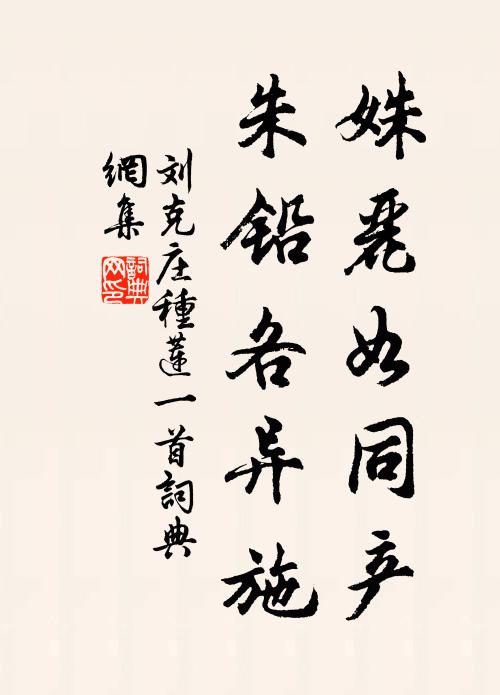 姝麗如同产
朱铅各异施
刘克庄種蓮一首詞典
網集
詞典網印